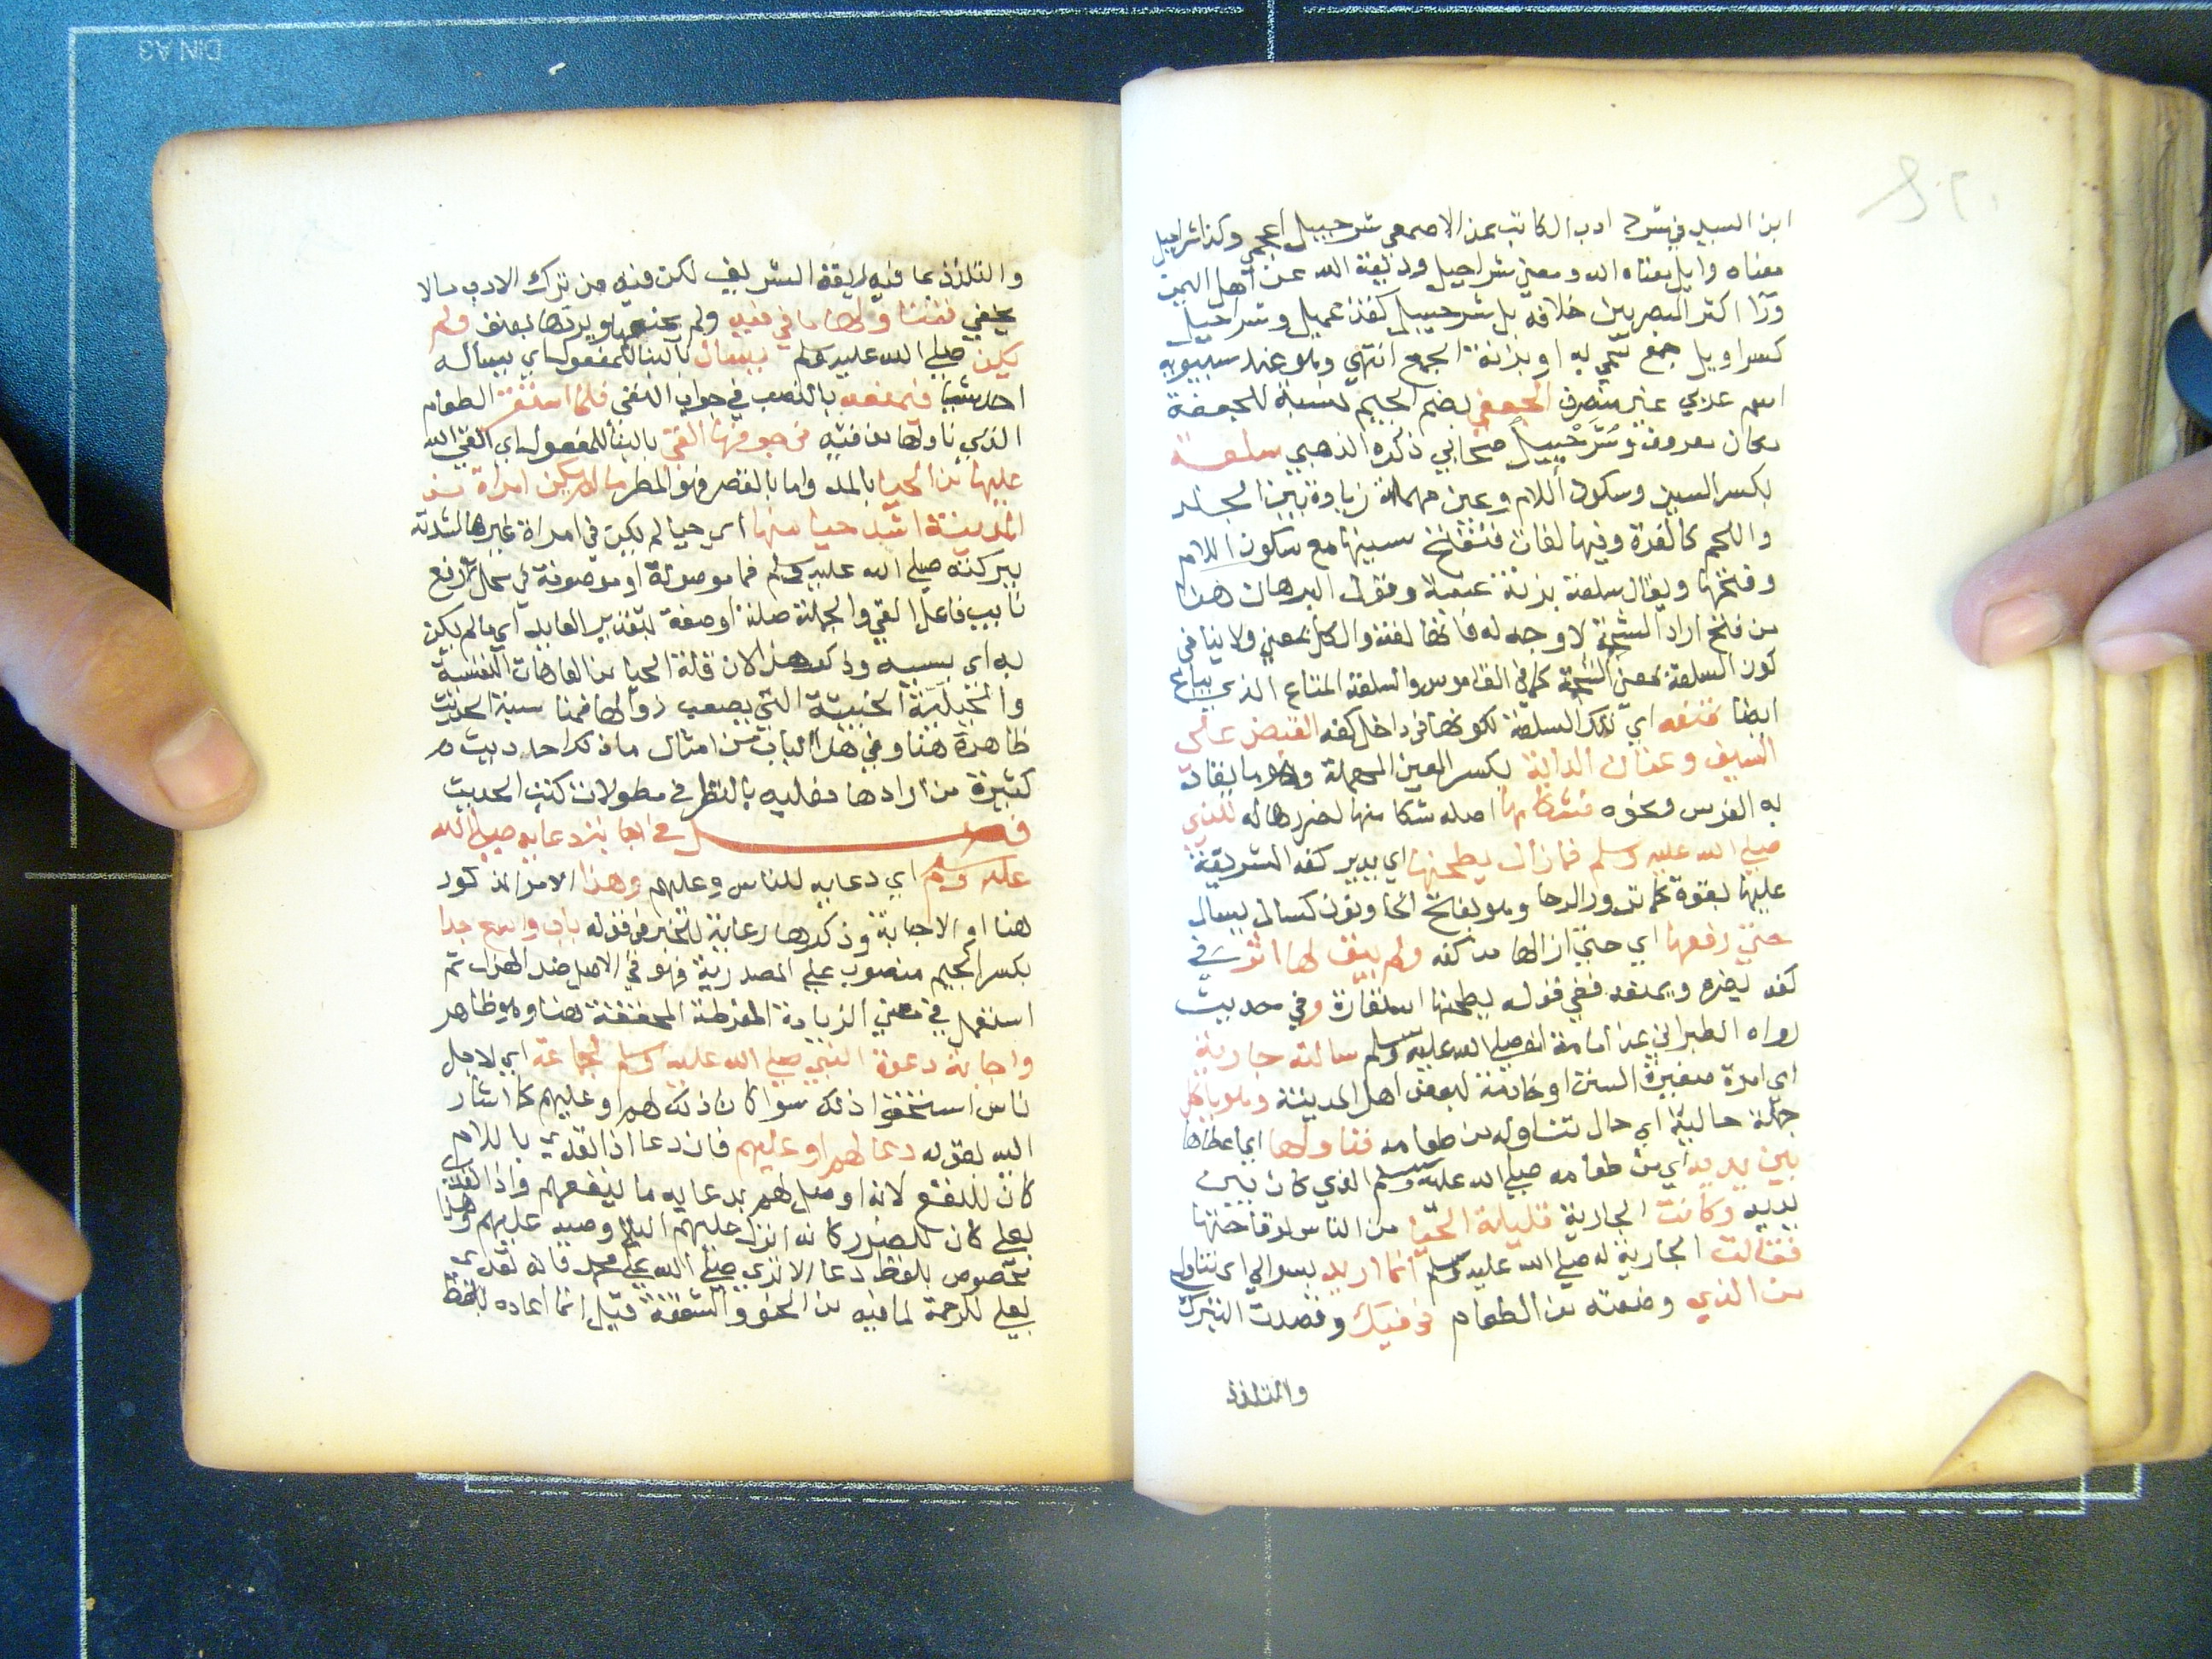 ابن السيد في شرح ادب الكاتب عن الاصمعي شرحبيل اعجمي وكذا شراحيل
معناه وايل معناه الله ومعنى شراحيل وديعة الله عن اهل اليمن
ورا اكثر البصريين خلافه بل شرحبيل كقذعميل وشراحيل
كسراويل جمع سمي به او بزنة الجمع انتهى وهو عند سيبويه
اسم عربي غير منصرف الجعفي بضم الجيم نسبة للجعفة
مكان معروف وشرحبيل صحابي ذكره الذهبي سلعة
بكسر السين وسكون اللام وعين مهملة زيادة بين الجلد
واللحم كالغدة وفيها لغات فتفتح سينها مع سكون اللام
وفتحها ويقال سلعة بزنة عنبة وقول البرهان هنا
من فتح اراد الشجة لا وجه له فانها لغة والكل بمعنى ولا ينافي
كون السلعة بمعنى الشجة كما في القاموس والسلعة المتاع الذي يباع
ايضا تمنعه اي تلك السلعة لكونها في داخل كفه القبض على
السيف وعنان الدابة بكسر العين المهملة وهو ما يقاد
به الفرس ونحوه فشكاها اصله شكا منها لضررها له للنبي
صلى الله عليه وسلم فما زال يطحنها اي يدير كفه الشريفة
عليها بقوة كما تدور الرحا وهو بفتح الحا وزن كسال يسال
حتى رفعها اي حتى ازالها من كفه ولم يبق لها اثر في
كفه يضره ويمنعه ففي قوله يطحنها استعارة وفي حديث
رواه الطبراني عن امامة انه صلى الله عليه وسلم سالته جارية
اي امراة صغيرة السن او خادمة لبعض اهل المدينة وهو ياكل
جملة حالية اي حال تناوله من طعامه فناولها اي اعطاها
بين يديه اي من طعامه صلى الله عليه وسلم الذي كان بين
يديه وكانت الجارية قليلة الحيا من الناس لوقاحتها
فقالت الجارية له صلى الله عليه وسلم انما اريد بسوالي ان تناولني
من الذي وضعته من الطعام في فيك وقصدت التبرك
والتلذذ
والتلذذ بما فيه ريقه الشريف لكن فيه من ترك الادب ما لا
يخفى فناولها ما في فيه ولم يمنعها ويردها بعنف ولم
يكن صلى الله عليه وسلم يسال بالبنا للمفعول اي يساله
احد شيا فيمنعه بالنصب في جواب النفي فلما استقر الطعام
الذي ناولها من فيه في جوفها القي بالبنا للمفعول اي القى الله
عليها من الحيا بالمد واما بالقصر فهو المطر ما لم يكن امراة من
المدينة اشد حيا منها اي حيا لم يكن في امراة غيرها لشدته
ببركته صلى الله عليه وسلم فما موصولة او موصوفة في محل رفع
نايب فاعل القي والجملة صلة او صفة بتقدير العايد اي ما لم يكن
به اي بسببه وذكر هذا لان قلة الحيا من العاهات النفسية
والجبلية الخبيثة التي يصعب زوالها
ظاهرة هنا وفي هذا الباب من امثال ما ذكر احاديث
كثيرة من ارادها فعليه بالنظر في مطولات كتب الحديث
فصل في اجابة دعايه صلى الله
عليه وسلم اي دعايه للناس وعليهم وهذا الامر المذكور
هنا او الاجابة وذكرها رعاية للخبر في قوله باب واسع جدا
بكسر الجيم منصوب على المصدرية فهو في الاصل ضد الهزل ثم
استعمل في معنى الزيادة المفرطة المحققة هنا وهو ظاهر
واجابة دعوة النبي صلى الله عليه وسلم لجماعة اي لاجل
ناس استحقوا ذلك سوا كان ذلك لهم او عليهم كما اشار
اليه بقوله دعا لهم او عليهم فان دعا اذا تعدى باللام
كان للنفع لانه اوصل لهم بدعايه ما ينفعهم واذا تعدى
بعلى كان للضرر كانه انزل عليهم البلا وصبه عليهم وهذا
مخصوص بلفظ دعا الا ترى صلى الله على محمد فانه تعدى
بعلى للرحمة لما فيه من الحنو والشفقة قيل انما اعاده بلفظ